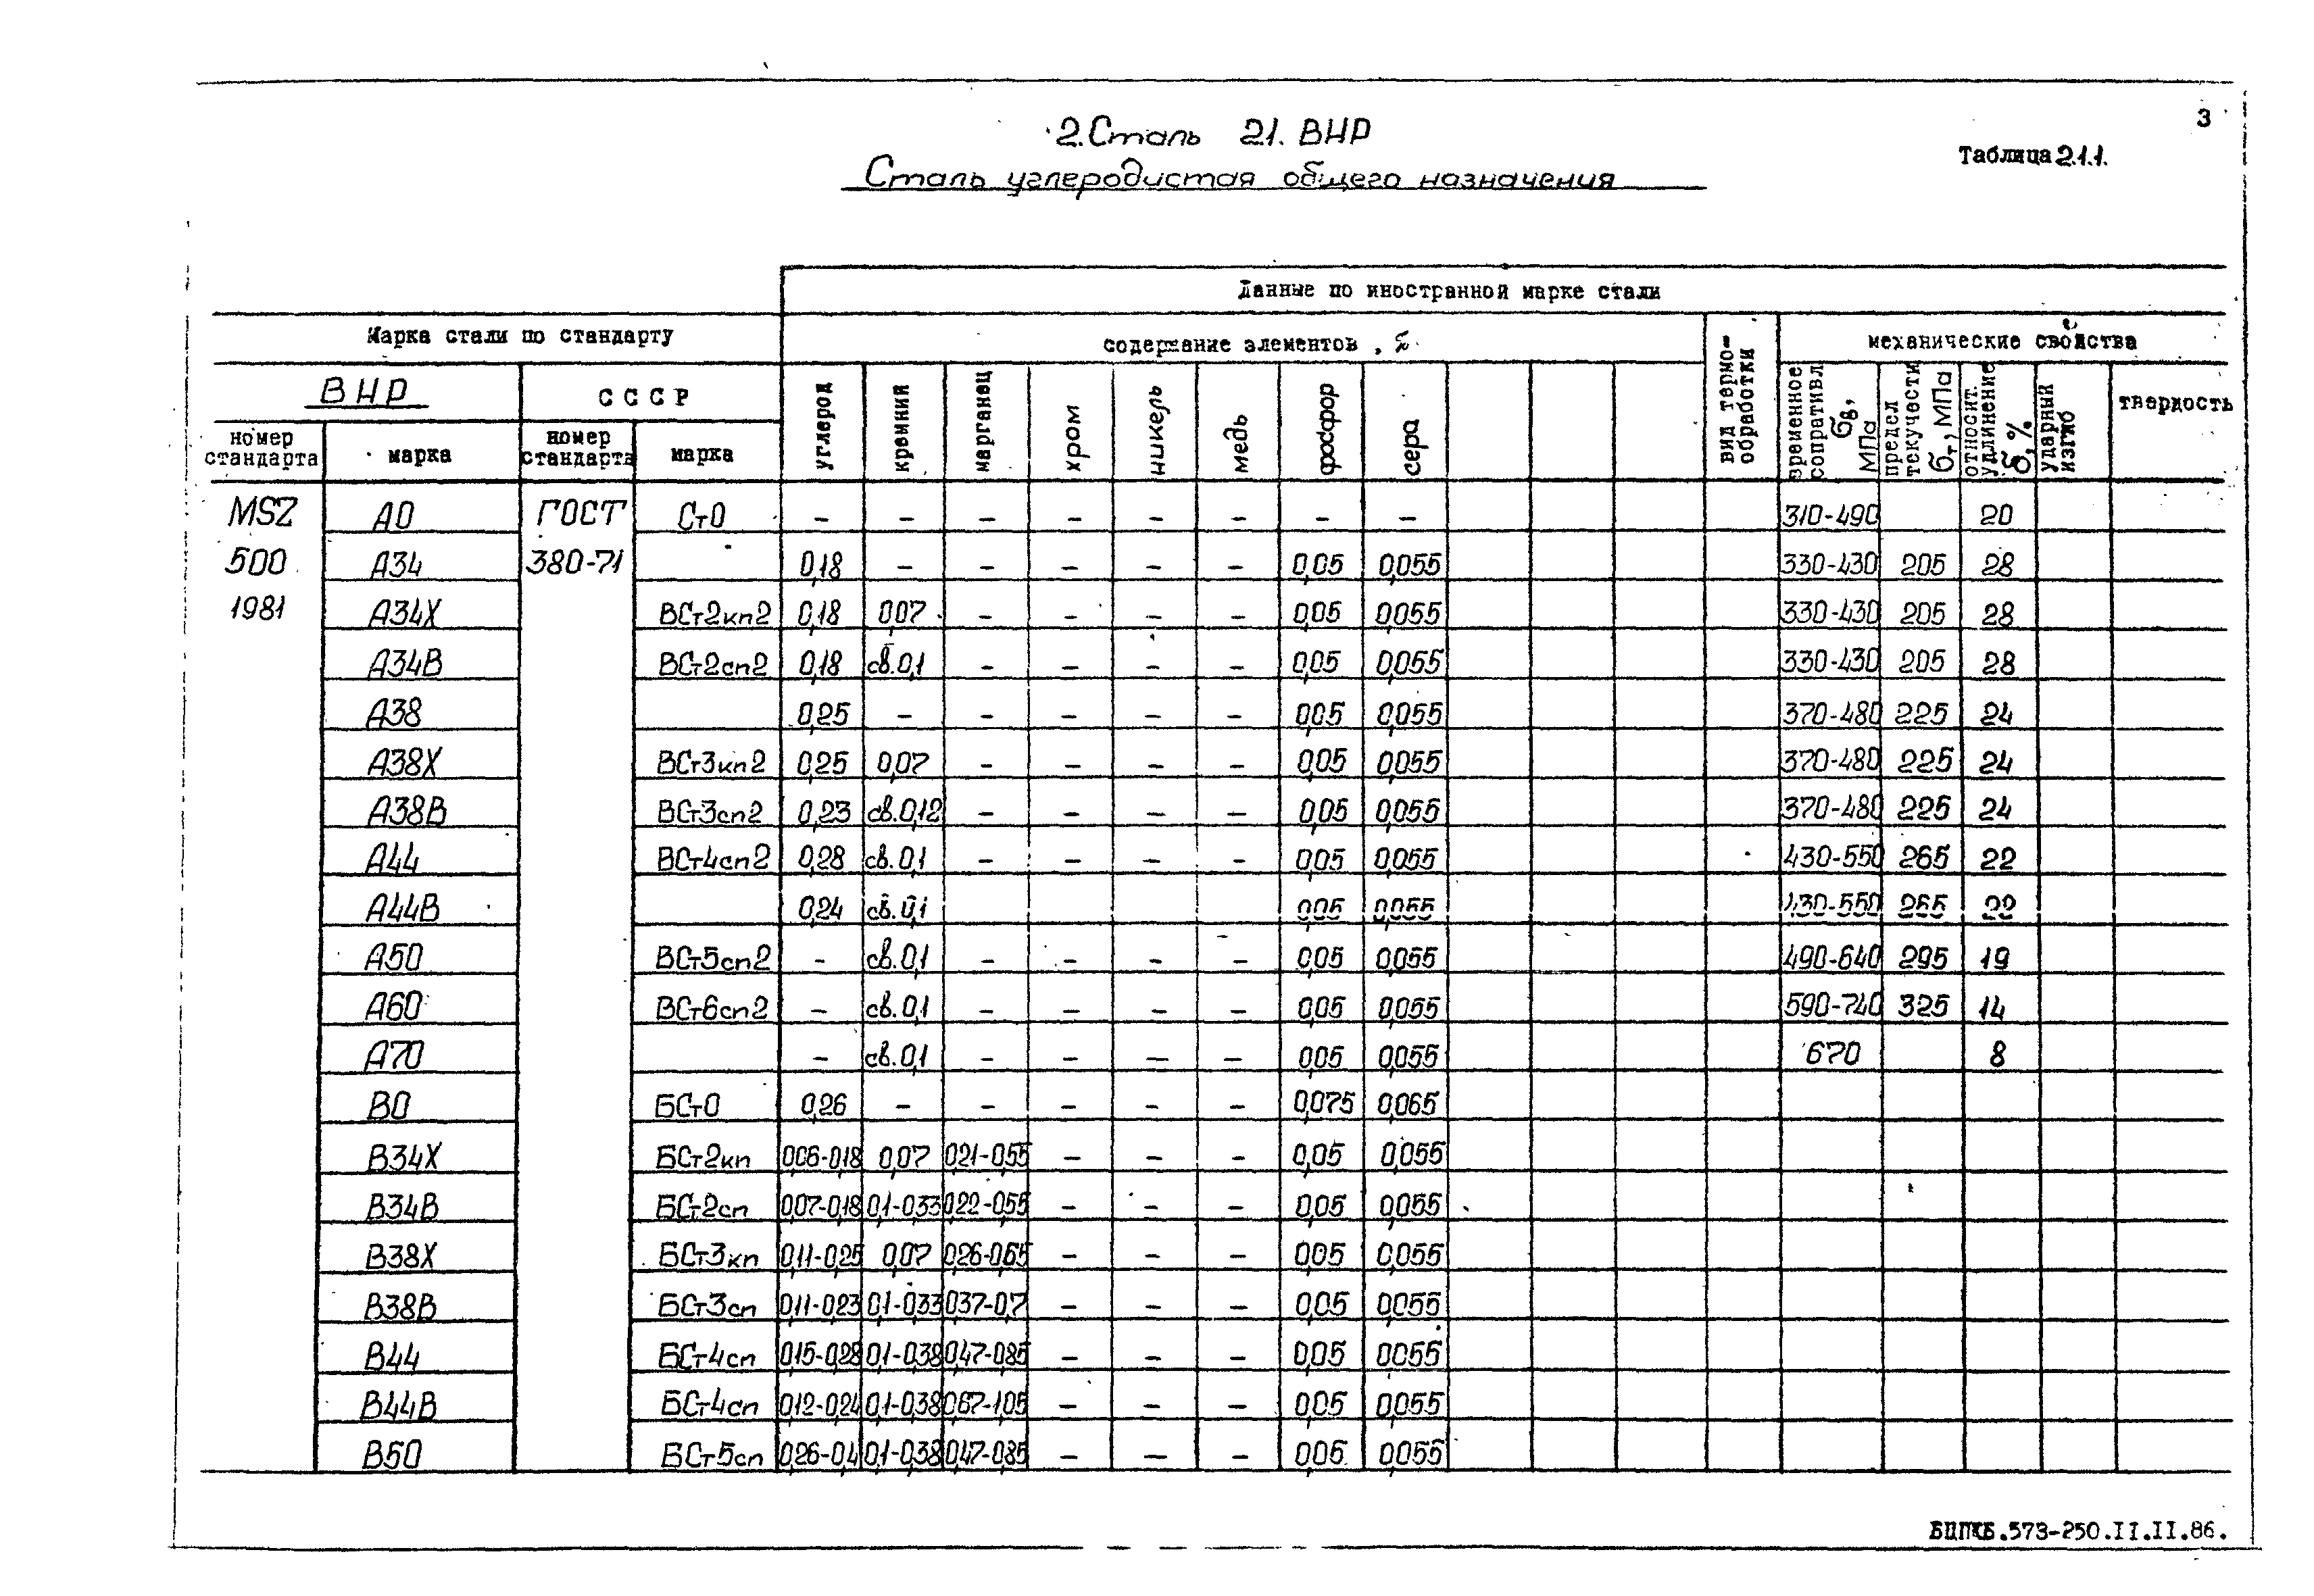 3
2. Сталь 2.1. ВНР
Таблица 2.1.1.
Сталь углеродистая общего назначения
Данные по иностранной марке стали
Марка стали по стандарту
содержание элементов, %
вид термо-обработки
механические свойства
ВНР
СССР
углерод
кремний
марганец
хром
никель
медь
фосфор
сера
временное сопративл. σв, МПа
предел текучести σт, МПа
относит. удлинение δ, %
ударный изгиб
твердость
номер стандарта
марка
номер стандарта
марка
MSZ А0 ГОСТ Ст0 – – – – – – – – 310-490 20
500 А34 380-71 0,18 – – – – – 0,05 0,055 330-430 205 28
1981 А34Х ВСт2кп2 0,18 0,07 – – – – 0,05 0,055 330-430 205 28
А34В ВСт2сп2 0,18 св.0,1 – – – – 0,05 0,055 330-430 205 28
А38 0,25 – – – – – 0,05 0,055 370-480 225 24
А38Х ВСт3кп2 0,25 0,07 – – – – 0,05 0,055 370-480 225 24
А38В ВСт3сп2 0,23 св.0,12 – – – – 0,05 0,055 370-480 225 24
А44 ВСт4сп2 0,28 св.0,1 – – – – 0,05 0,055 430-550 265 22
А44В 0,24 св.0,1 0,05 0,055 430-550 265 22
А50 ВСт5сп2 – св.0,1 – – – – 0,05 0,055 490-640 295 19
А60 ВСт6сп2 – св.0,1 – – – – 0,05 0,055 590-740 325 14
А70 – св.0,1 – – – – 0,05 0,055 670 8
В0 БСт0 0,26 – – – – – 0,075 0,065
В34Х БСт2кп 0,06-0,18 0,07 0,21-0,55 – – – 0,05 0,055
В34В БСт2сп 0,07-0,18 0,1-0,33 0,22-0,55 – – – 0,05 0,055
В38Х БСт3кп 0,11-0,25 0,07 0,26-0,65 – – – 0,05 0,055
В38В БСт3сп 0,11-0,23 0,1-0,33 0,37-0,7 – – – 0,05 0,055
В44 БСт4сп 0,15-0,28 0,1-0,38 0,47-0,85 – – – 0,05 0,055
В44В БСт4сп 0,12-0,24 0,1-0,38 0,67-1,05 – – – 0,05 0,055
В50 БСт5сп 0,26-0,4 0,1-0,38 0,47-0,85 – – – 0,05 0,055
БЦПКБ.573-250.II.II.86.